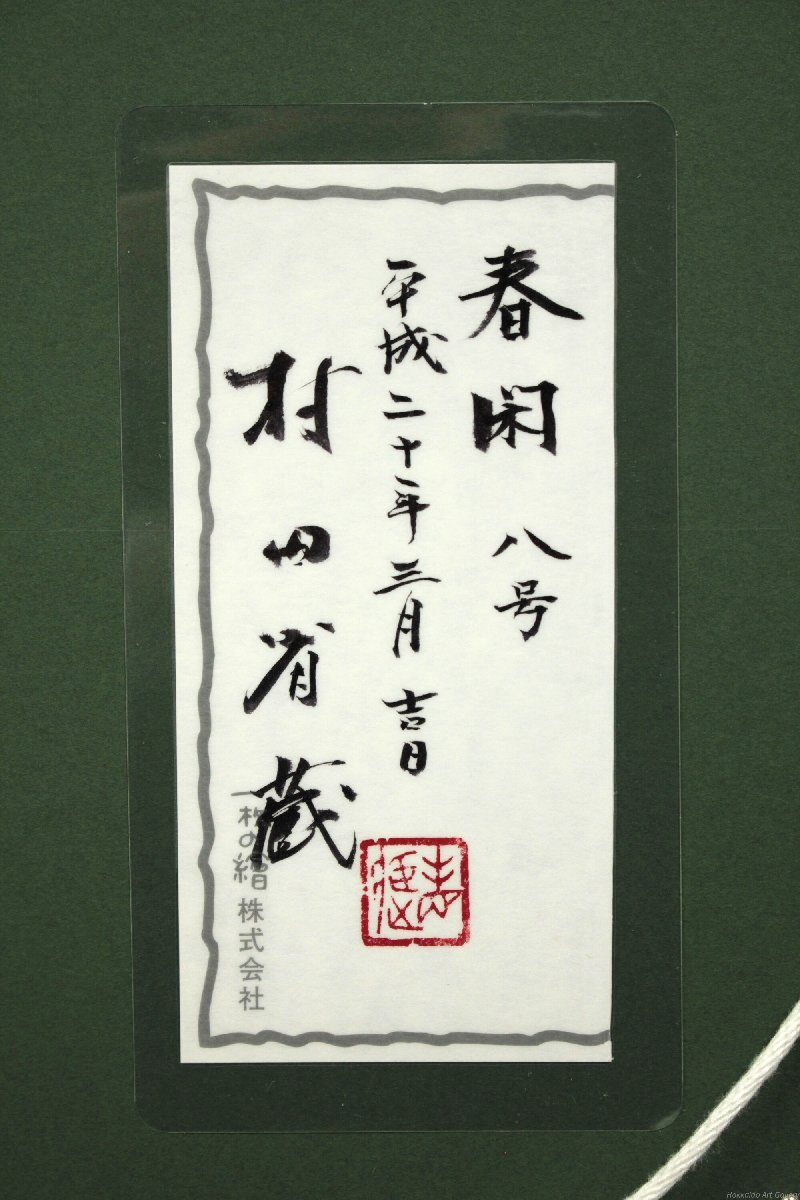 春閑 八号
平成二十年三月吉日
村田省蔵
一枚の繪株式会社
Hokkaido Art Ga